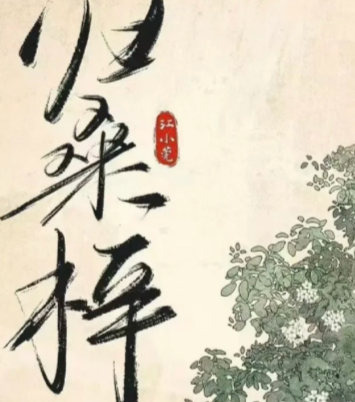 归桑梓
江小